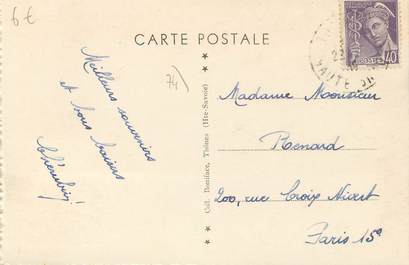 6€
CARTE POSTALE
74)
Meilleurs souvenirs
et bons baisers
Coll. Boniface, Thônes (Hte-Savoie)
40
Madame Monsieur
Renard
200, rue Croix Nivert
Paris 15e